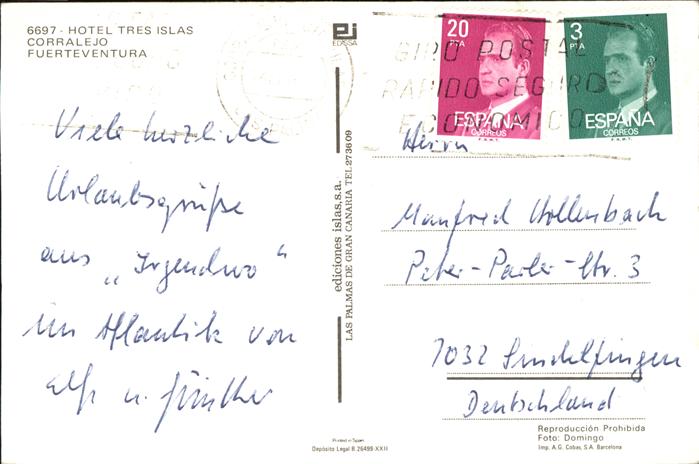 6697 - HOTEL TRES ISLAS
CORRALEJO
FUERTEVENTURA
Viele herzliche
Urlaubsgrüße
aus „Irgendwo"
im Atlantik von
Elfr. u. Günther
EDISSA
ediciones islas, s.a.
LAS PALMAS DE GRAN CANARIA TEL. 273609
Printed in Spain
Depósito Legal B 26499-XXII
20 PTA
ESPAÑA
CORREOS
F.N.M.T.
3 PTA
ESPAÑA
CORREOS
F.N.M.T.
GIRO POSTAL
RAPIDO SEGURO
ECONOMICO
Herrn
Manfred Hollenbach
Peter-Parler-Str. 3
7032 Sindelfingen
Deutschland
Reproducción Prohibida
Foto: Domingo
Imp. A.G. Cobas, S.A. Barcelona